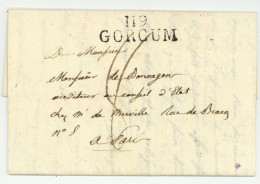 119
GORCUM
Monsieur
Monsieur de
auditeur au conseil d'Etat
chez Mr de Merville Rue de Bracq
n° 8
a Paris